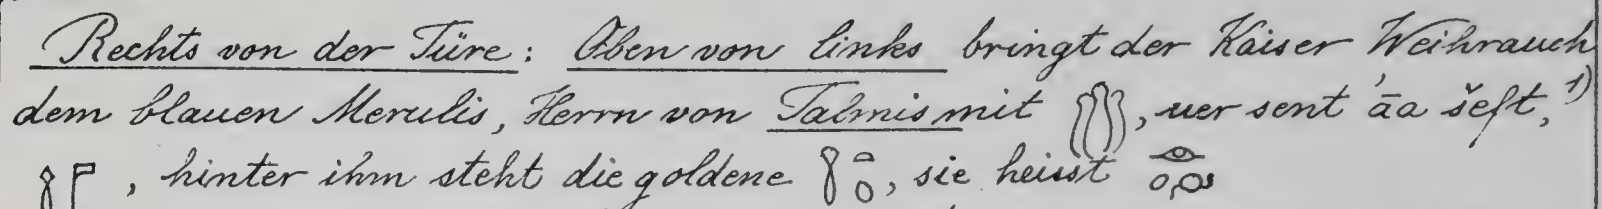 Rechts von der Türe: Oben von links bringt der Kaiser Weihrauch
dem blauen Merulis, Herrn von Talmis mit , uer sent ʾāa šeft, 1)
, hinter ihm steht die goldene , sie heisst